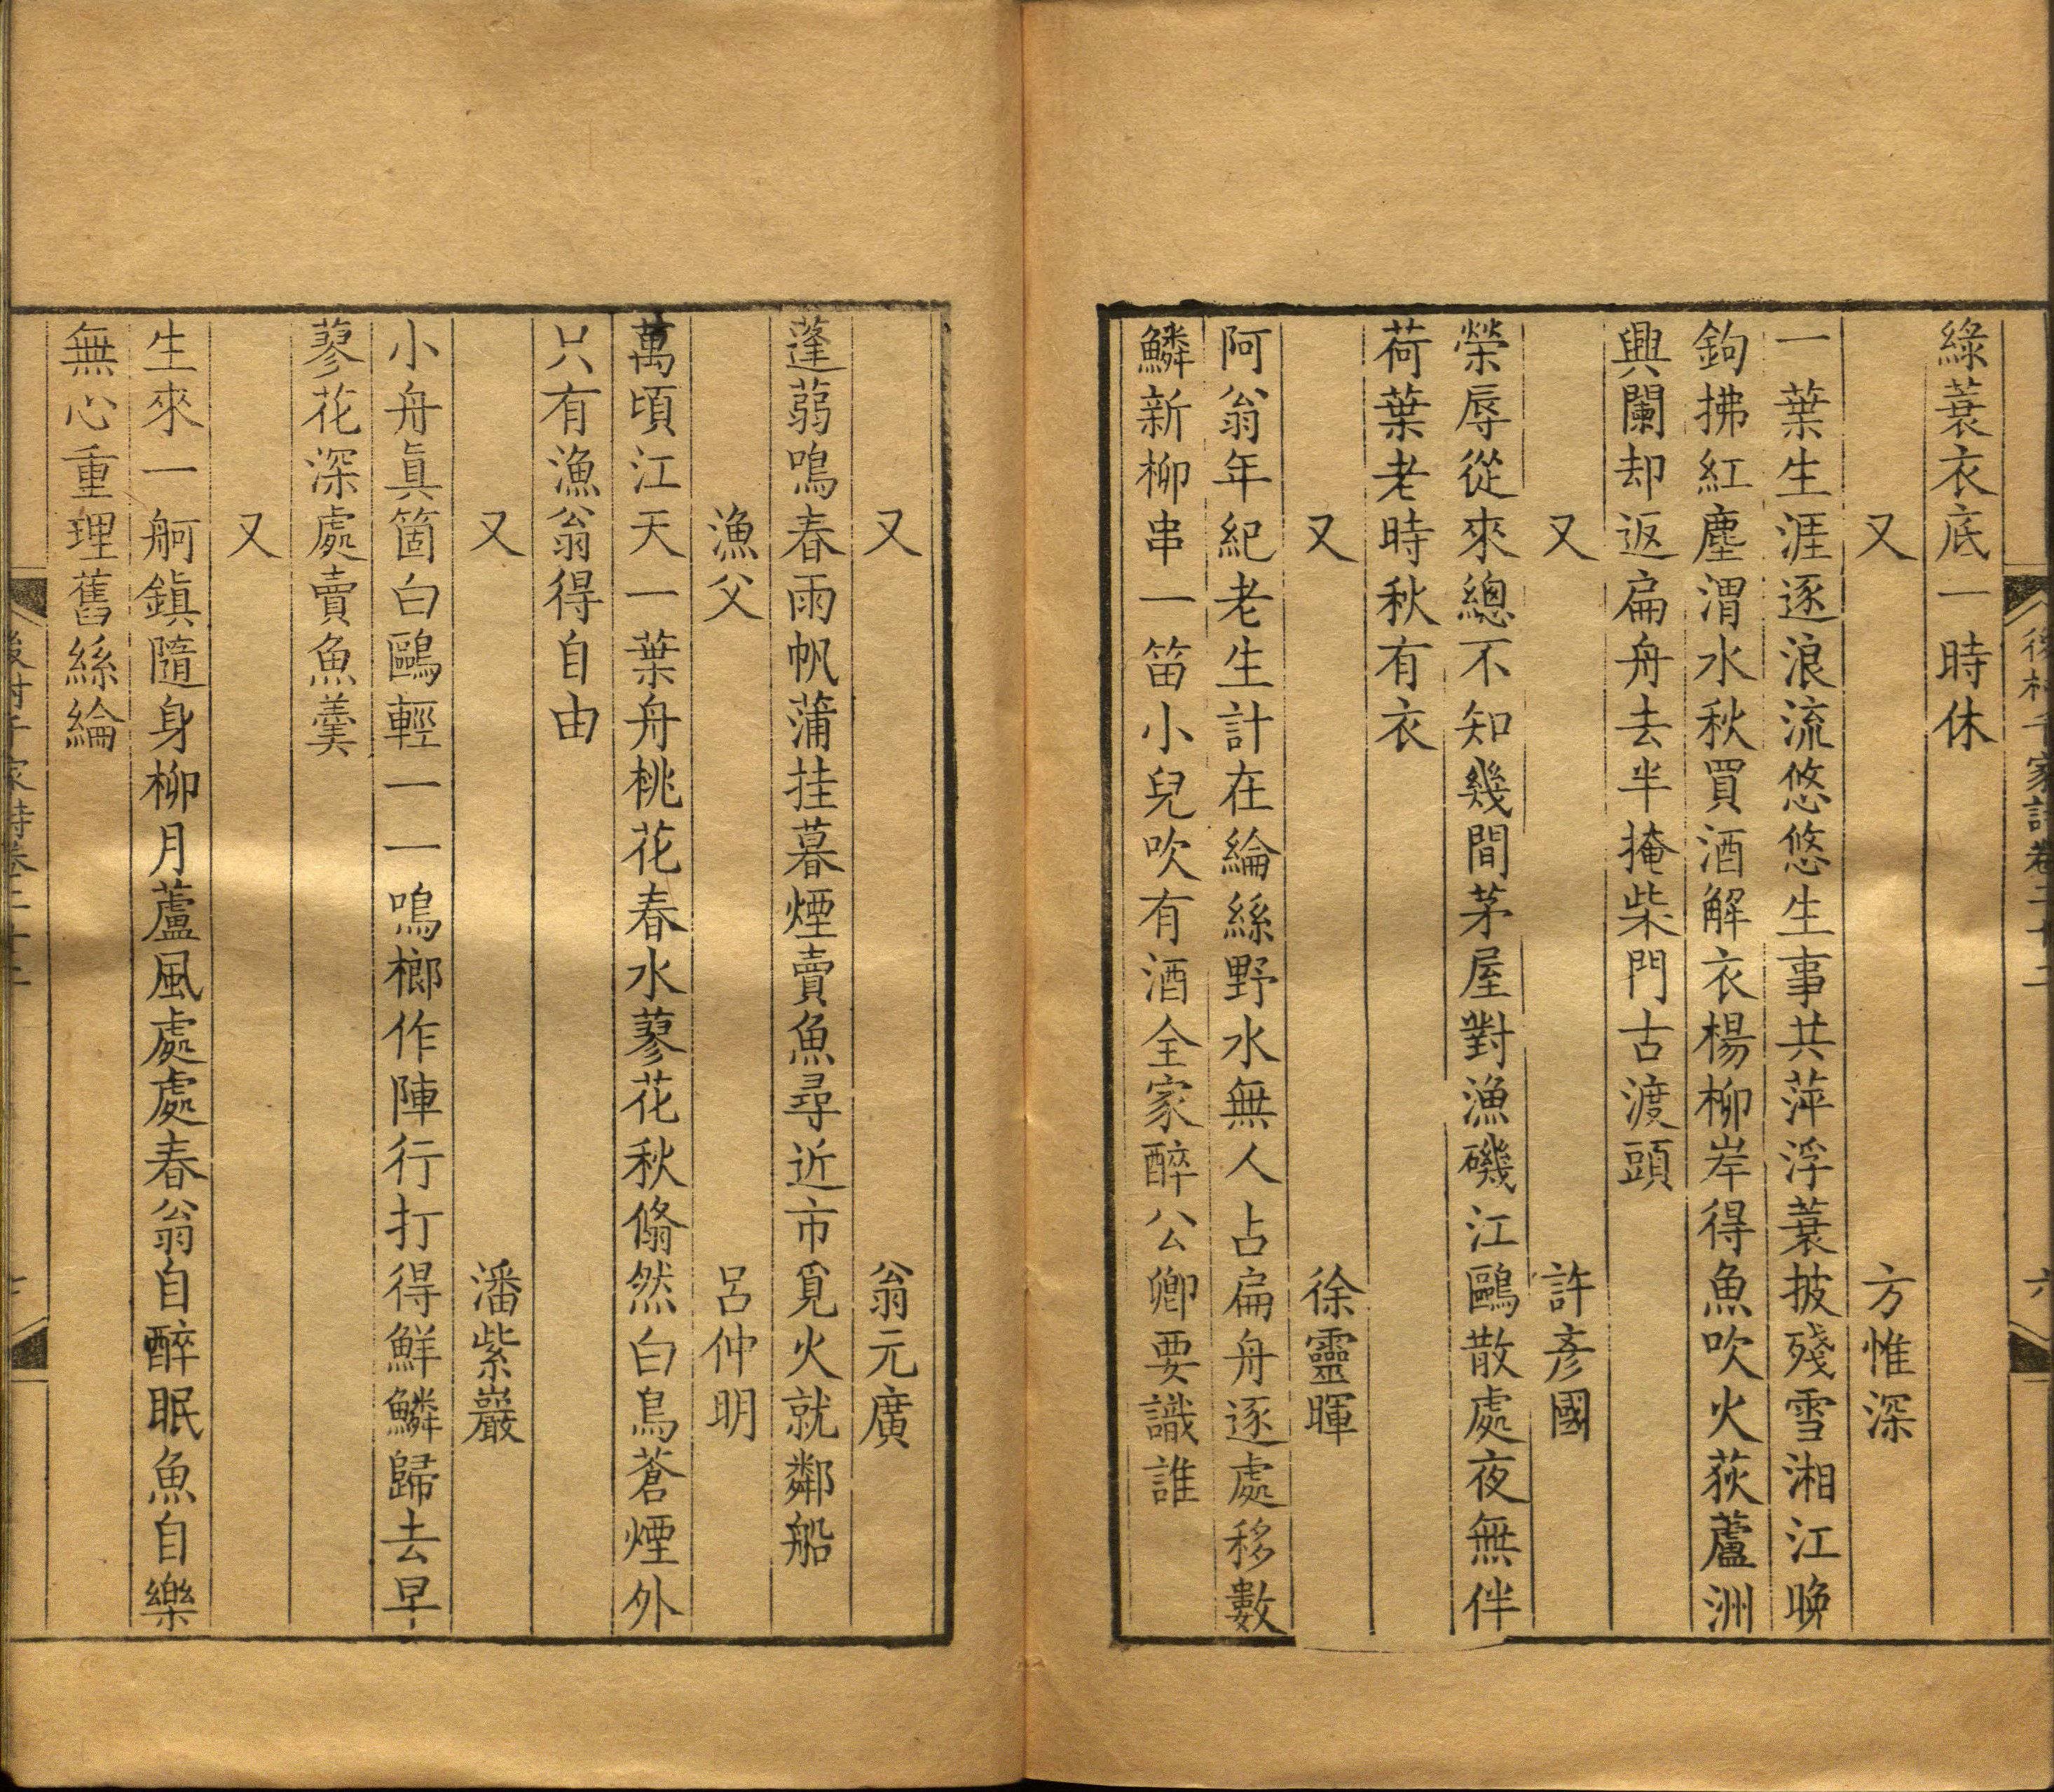 後村千家詩卷二十二
六
綠蓑衣底一時休
又 方惟深
一葉生涯逐浪流悠悠生事共萍浮蓑披殘雪湘江晚
鉤拂紅塵渭水秋買酒解衣楊柳岸得魚吹火荻蘆洲
興闌却返扁舟去半掩柴門古渡頭
又 許彥國
榮辱從來總不知幾間茅屋對漁磯江鷗散處夜無伴
荷葉老時秋有衣
又 徐靈暉
阿翁年紀老生計在綸絲野水無人占扁舟逐處移數
鱗新柳串一笛小兒吹有酒全家醉公卿要識誰
又 翁元廣
蓬蒻鳴春雨帆蒲挂暮煙賣魚尋近市覓火就鄰船
漁父 呂仲明
萬頃江天一葉舟桃花春水蓼花秋翛然白鳥蒼煙外
只有漁翁得自由
又 潘紫巖
小舟眞箇白鷗輕一一鳴榔作陣行打得鮮鱗歸去早
蓼花深處賣魚羹
又
生來一舸鎭隨身柳月蘆風處處春翁自醉眠魚自樂
無心重理舊絲綸